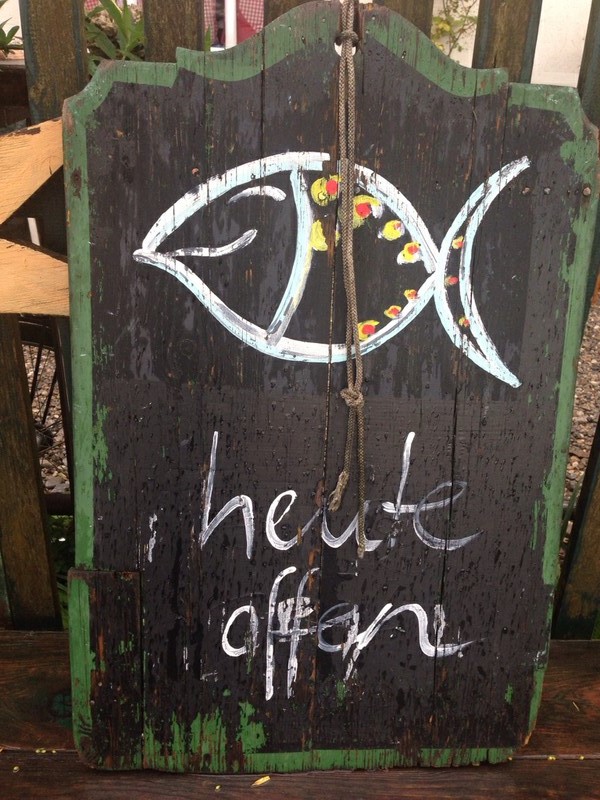 heute
offen